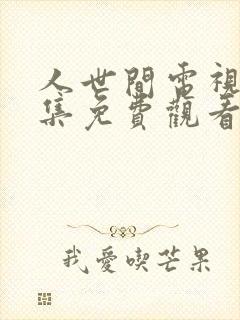 人世間電視
集免費觀看
我愛喫芒果